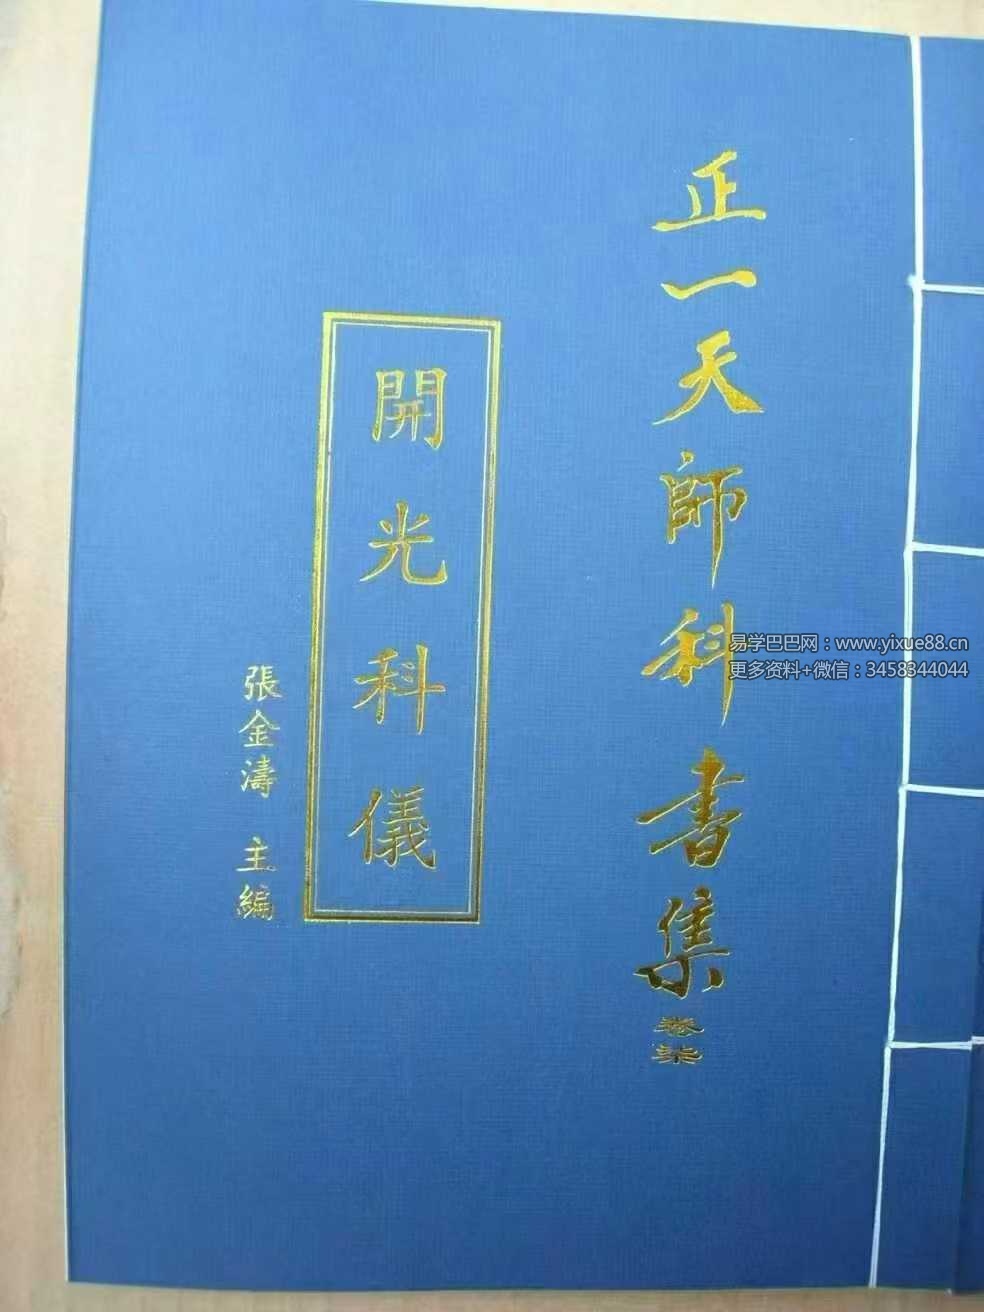 正一天師科書集 卷柒
開光科儀
張金濤 主編
易学巴巴网：www.yixue88.cn
更多资料+微信：3458344044